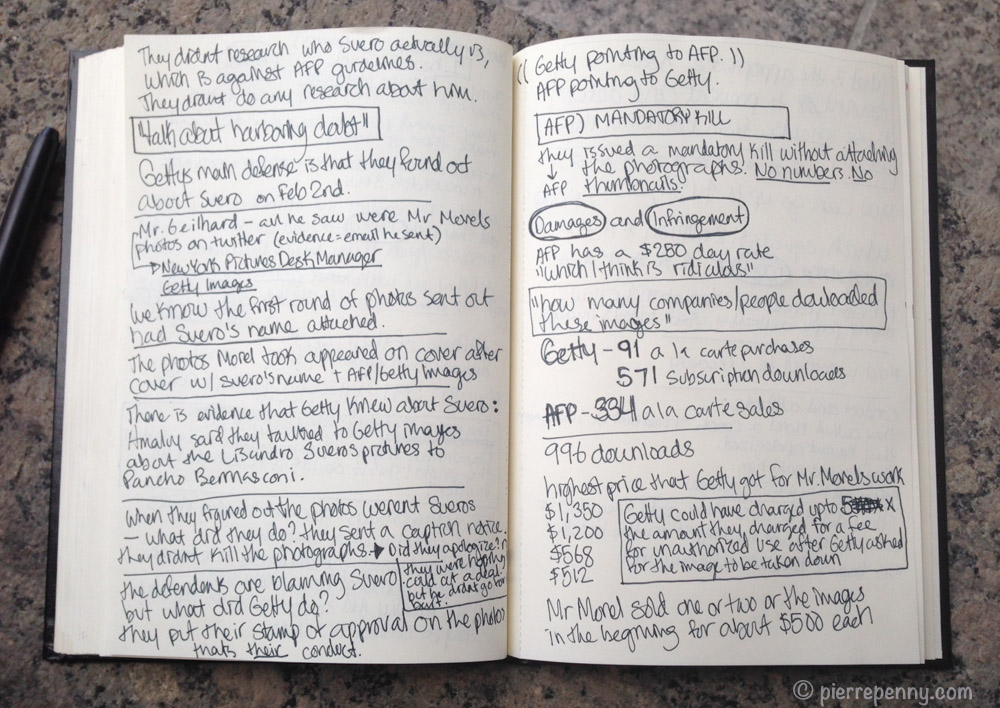 They didnt research who Suero actually is,
which is against AFP guidelines.
They didnt do any research about him.
"talk about harboring doubt"
Gettys main defense is that they found out
about Suero on Feb 2nd.
Mr. Geilhard – all he saw were Mr Morels
photos on twitter (evidence = email he sent)
New York Pictures Desk Manager
Getty Images
We know the first round of photos sent out
had Suero's name attached.
The photos Morel took appeared on cover after
cover w/ suero's name + AFP/Getty Images
There is evidence that Getty knew about Suero:
Amalvy said they talked to Getty images
about the Lisandro Sueros pictures to
Pancho Bernasconi.
when they figured out the photos werent Sueros
– what did they do? they sent a caption notice.
they didnt kill the photographs. Did they apologize?
they were hoping
could cut a deal
but he didnt go for
the defendents are blaming Suero
but what did Getty do?
they put their stamp of approval on the photos
thats their conduct.
(( Getty pointing to AFP. ))
AFP pointing to Getty.
AFP) MANDATORY KILL
they issued a mandatory kill without attaching
↓ the photographs. No numbers No
AFP thumbnails.
Damages and Infringement
AFP has a $280 day rate
"which I think is ridiculous"
"how many companies/people dowloaded
these images"
Getty – 91 a la carte purchases
571 subscription downloads
AFP – 334 a la carte sales
996 downloads
highest price that Getty got for Mr. Morels work
$1,350
$1,200
$568
$512
Getty could have charged up to 5 x
the amount they charged for a fee
for unauthorized use after Getty asked
for the image to be taken down
Mr Morel sold one or two or the images
in the beginning for about $500 each
© pierrepenny.com